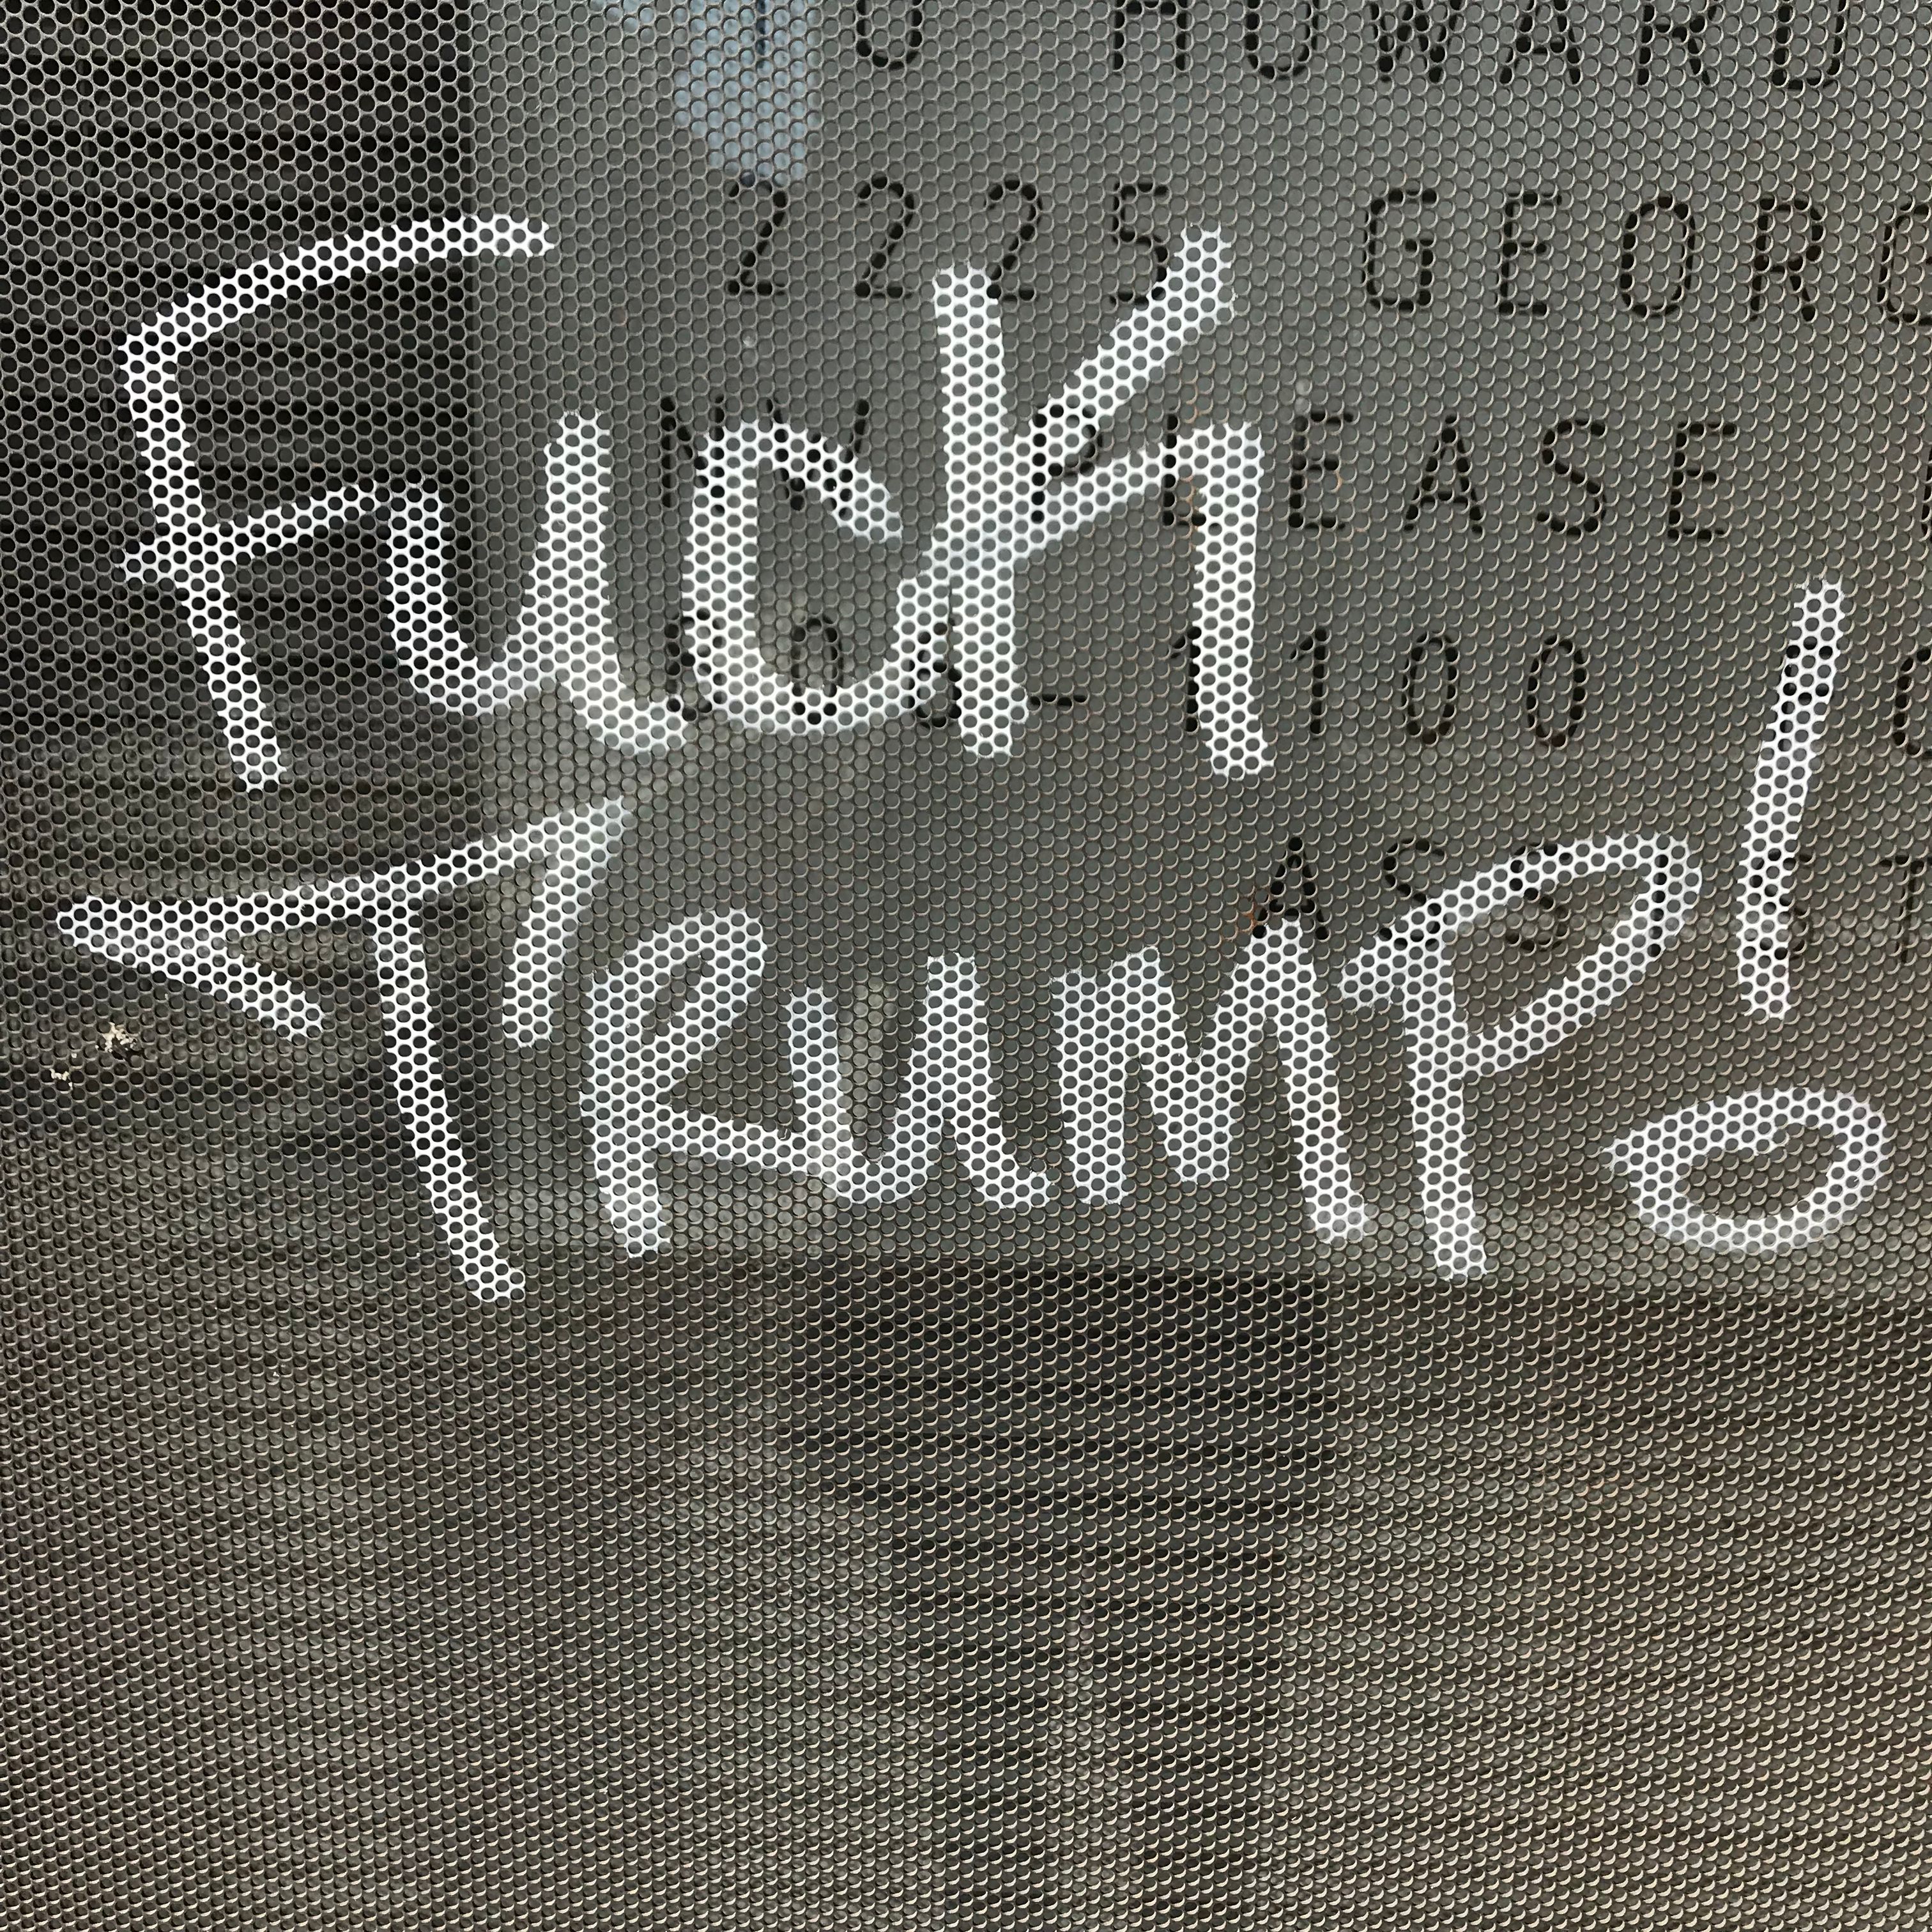 HOWARD
2225 GEORG
NW PLEASE
-1100
FUCK
TRUMP!